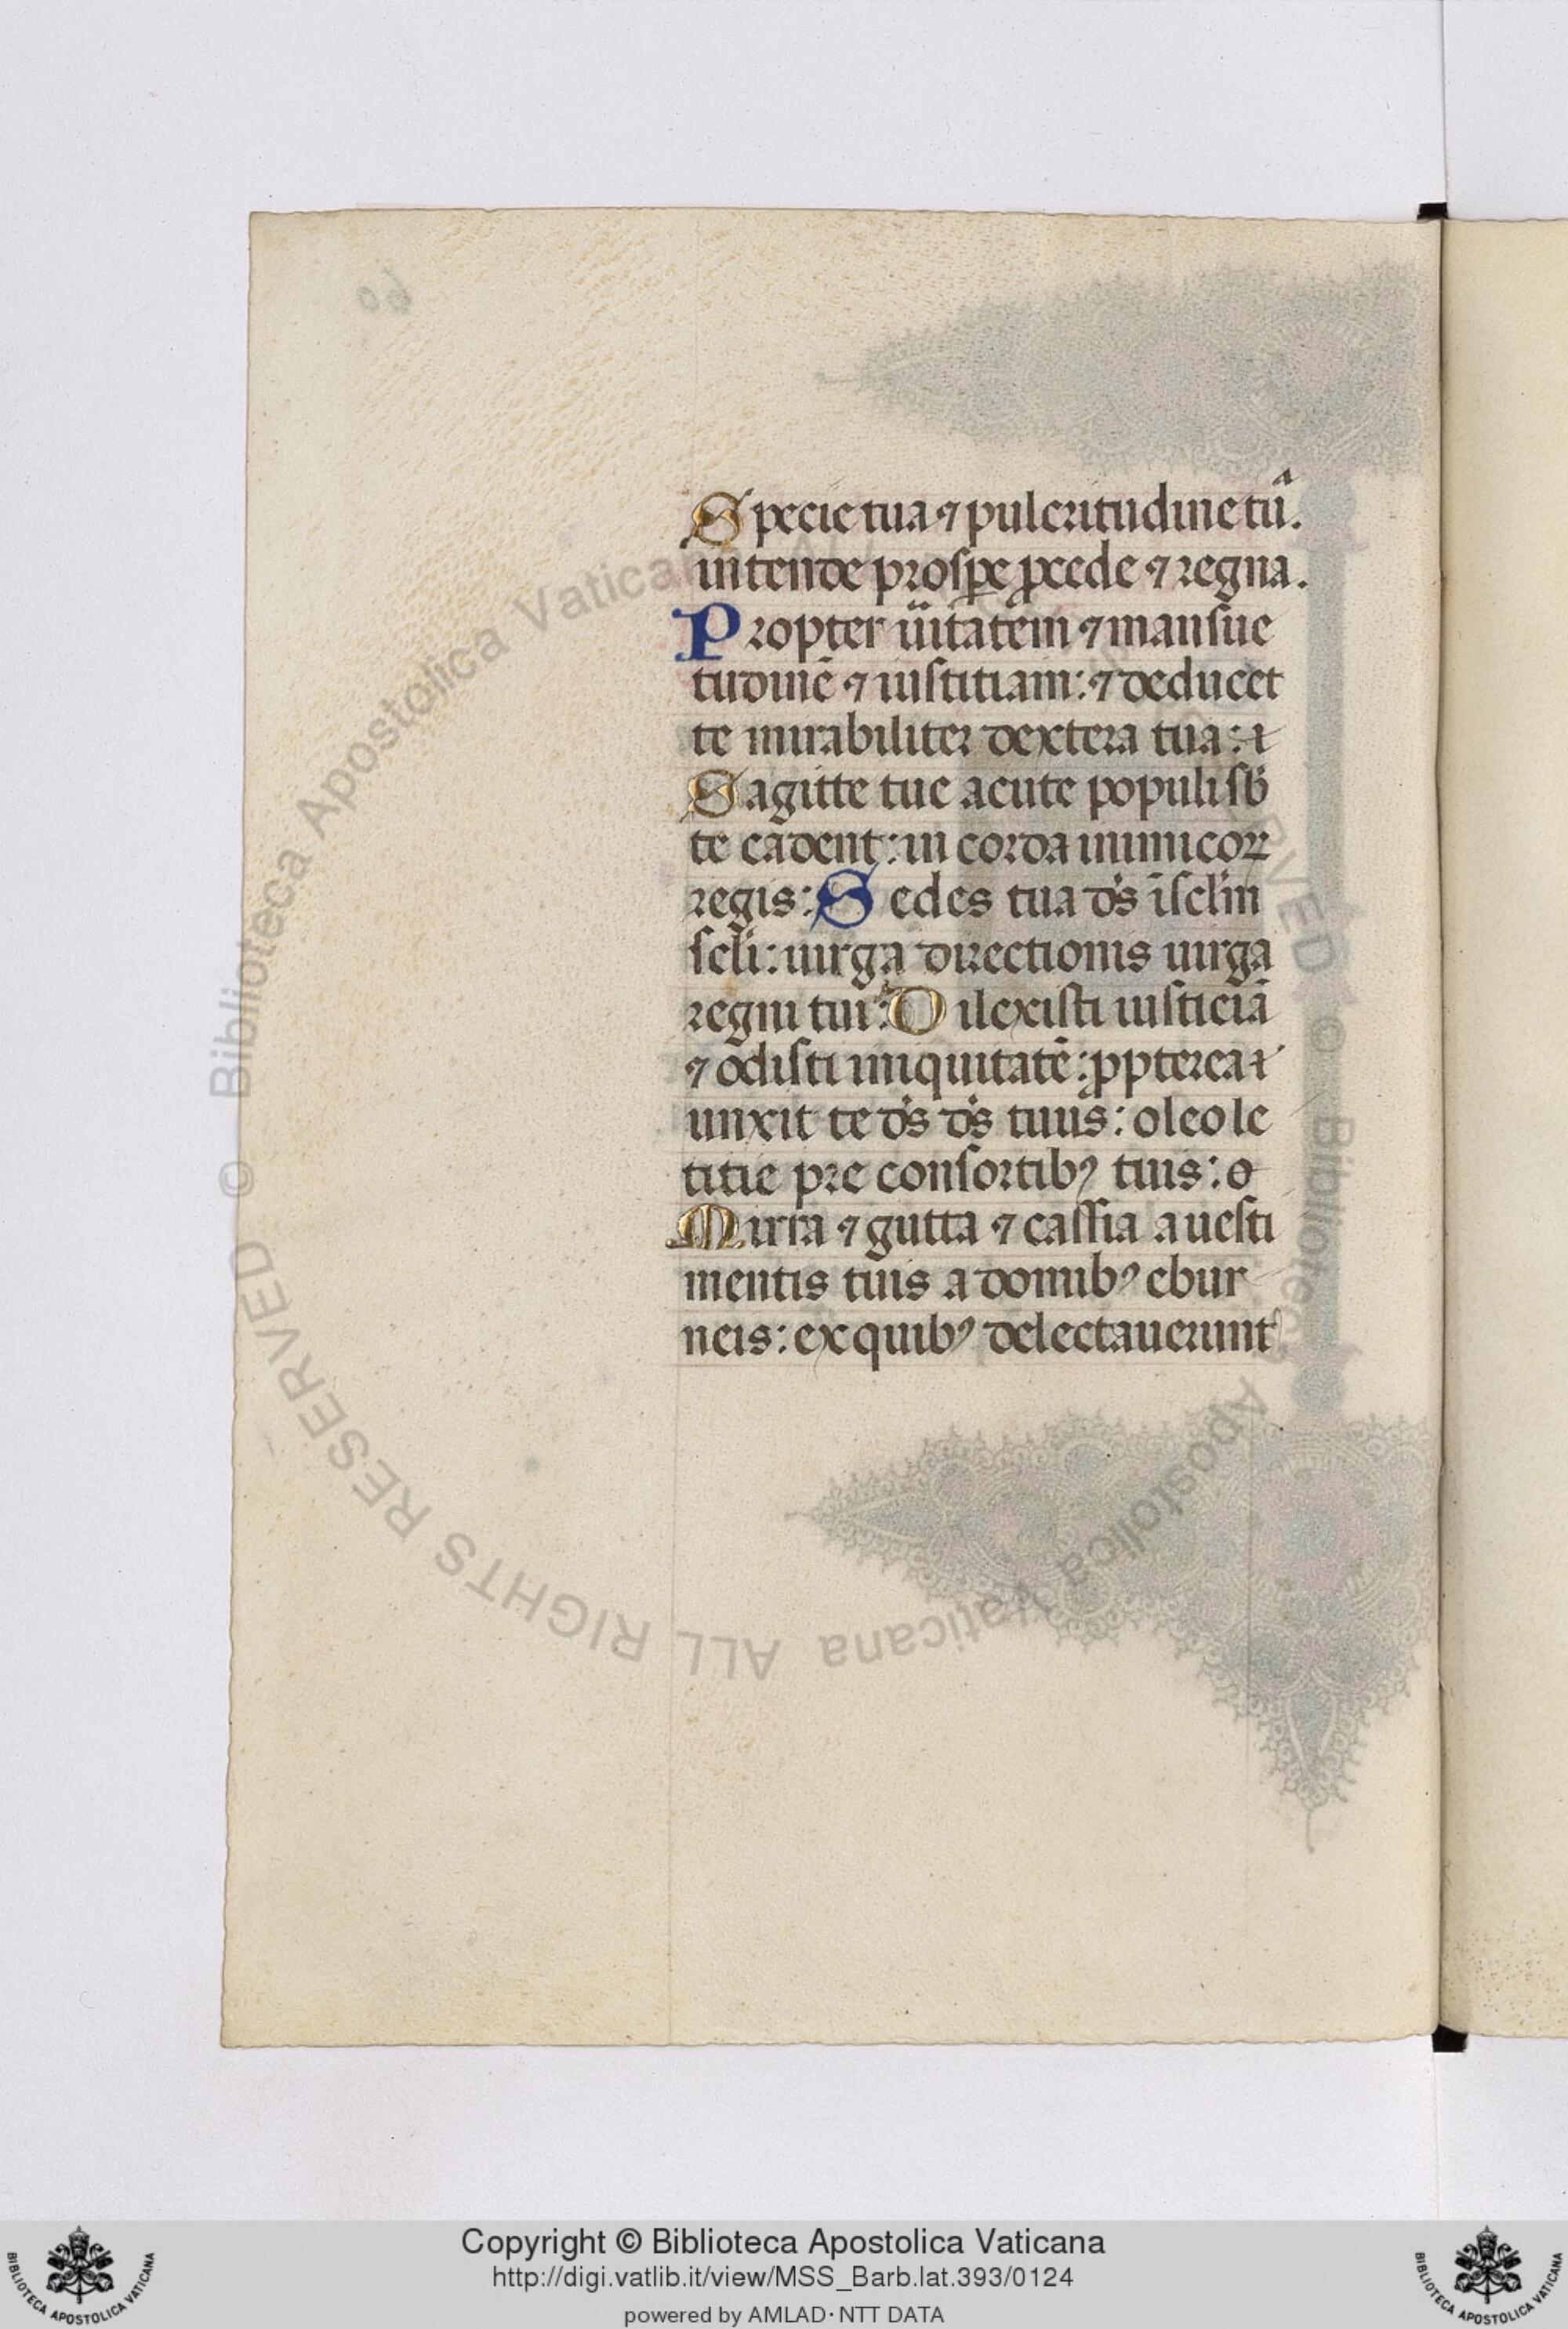 Specie tua ⁊ pulcritudine tūᵃ.
intende prosꝑe ꝓcede ⁊ regna.
Propter ūitatem ⁊ mansue
tudinē ⁊ iustitiam: ⁊ deducet
te mirabiliter dextera tua:
Sagitte tue acute populi sb̄
te cadent: in corda inimicoꝝ
regis: Sedes tua ds̄ ī sclm̄ in
scli: uirga directionis uirga
regni tui: Dilexisti iusticiā
⁊ odisti iniquitatē: ꝓpterea
unxit te ds̄ ds̄ tuus: oleo le
titie pre consortibꝰ tuis: o
Mirra ⁊ gutta ⁊ cassia a uesti
mentis tuis a domibꝰ ebur
neis: ex quibꝰ delectauerunt
© Biblioteca Apostolica Vaticana ALL RIGHTS RESERVED
Copyright © Biblioteca Apostolica Vaticana
http://digi.vatlib.it/view/MSS_Barb.lat.393/0124
powered by AMLAD·NTT DATA
BIBLIOTECA APOSTOLICA VATICANA
BIBLIOTECA APOSTOLICA VATICANA